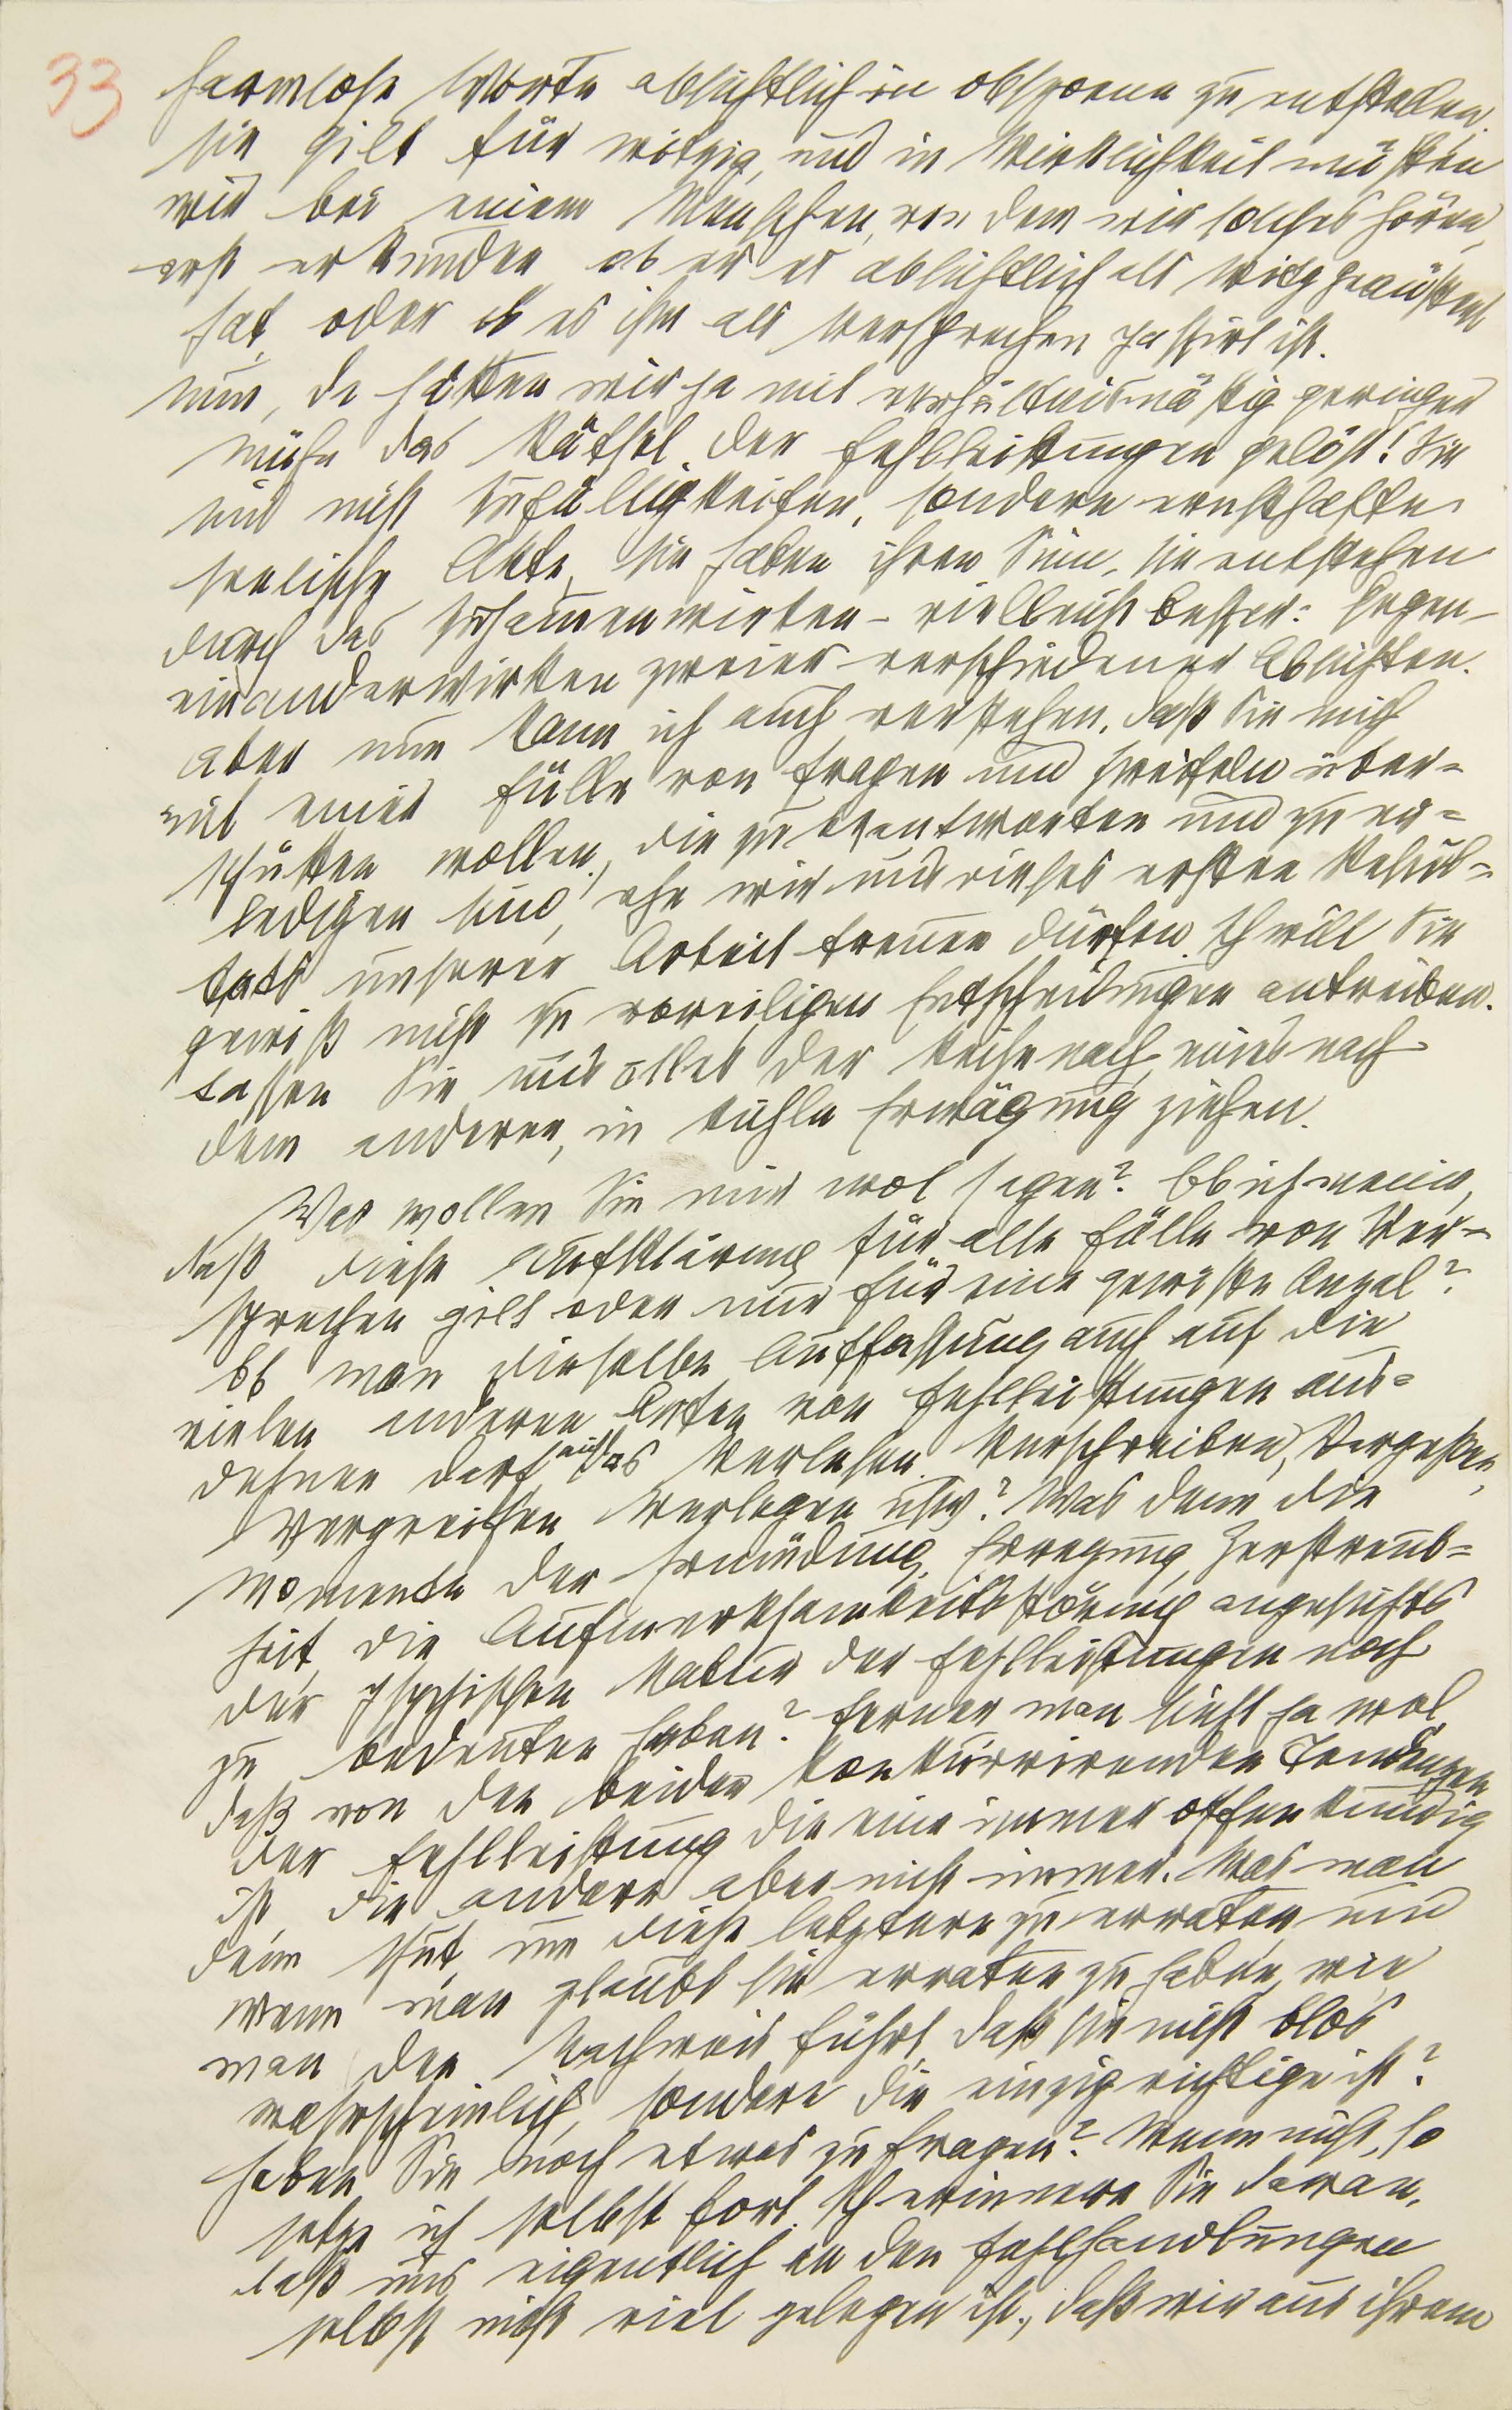 33
harmlose Worte absichtlich in obszoene zu entstellen.
sie gilt für witzig, und in Wirklichkeit müßten
wir bei einem Menschen, von dem wir solches hören,
erst erkunden ob er es absichtlich als Witz geäußert
hat, oder ob es ihm als Versprechen passirt ist.
Nun, da hätten wir ja mit verhältnismäßig geringer
Mühe das Rätsel der Fehlleistungen gelöst! Sie
sind nicht Zufälligkeiten, sondern ernsthafte
seelische Akte, sie haben ihren Sinn, sie entstehen
durch das Zusammenwirken - vielleicht besser: Gegen-
einanderwirken zweier verschiedener Absichten.
Aber nun kann ich auch verstehen, daß Sie mich
mit einer Fülle von Fragen und Zweifeln über=
schütten wollen, die zu beantworten und zu er=
ledigen sind, ehe wir uns dieses ersten Resul=
tats unserer Arbeit freuen dürfen. Ich will Sie
gewiß nicht zu voreiligen Entscheidungen antreiben.
Lassen Sie uns alles der Reihe nach, eines nach
dem anderen, in kühle Erwägung ziehen.
Was wollen Sie mir wol sagen? Ob ich meine,
daß diese Aufklärung für alle Fälle von Ver=
sprechen gilt oder nur für eine gewisse Anzal?
Ob man dieselbe Auffassung auch auf die
vielen anderen Arten von Fehlleistungen aus=
dehnen darf, auf das Verlesen, Verschreiben, Vergessen,
Vergreifen Verlegen usw? Was denn die
Momente der Ermüdung, Erregung, Zerstreut=
heit, die Aufmerksamkeitsstörung angesichts
der psychischen Natur der Fehlleistungen noch
zu bedeuten haben? Ferner man sieht ja wol,
daß von den beiden konkurrirenden Tendenzen
der Fehlleistung die eine immer offenkundig
ist, die andere aber nicht immer. Was man
dann thut, um diese letztere zu erraten und
wenn man glaubt sie erraten zu haben, wie
man den Nachweis führt, daß sie nicht blos
wahrscheinlich, sondern die einzig richtige ist?
Haben Sie noch etwas zu fragen? Wenn nicht, so
setze ich selbst fort. Ich erinnere Sie daran,
daß uns eigentlich an den Fehlhandlungen
selbst nicht viel gelegen ist, daß wir aus ihrem